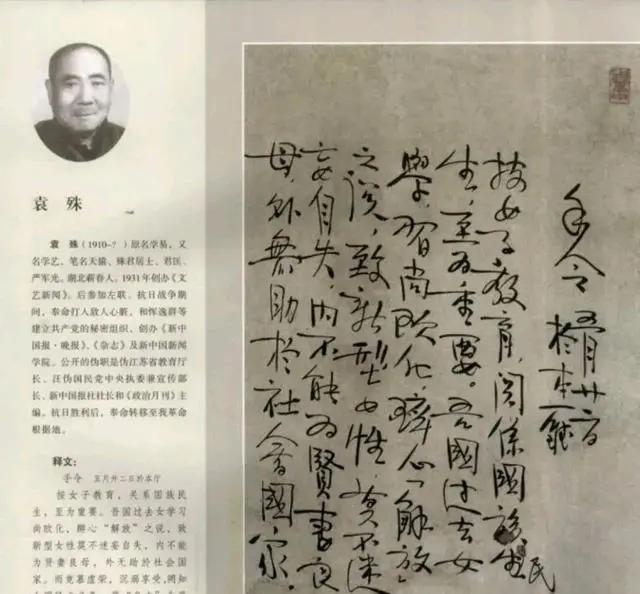 袁 殊
袁 殊(1910-?)原名学易,又
名学艺、笔名天猿、殊君居士、君匡、
严军光。湖北蕲春人。1931年创办《文
艺新闻》。后参加左联。抗日战争期
间,奉命打入敌人心脏,和恽逸群等
建立共产党的秘密组织、创办《新中
国报·晚报》、《杂志》及新中国新闻
学院。公开的伪职是伪江苏省教育厅
长、汪伪国民党中央执委兼宣传部
长、新中国报社社长和《政治月刊》主
编。抗日胜利后,奉命转移至我革命
根据地。
释文:
手令 五月廿二日於本厅
按女子教育,关系国族民
生,至为重要。吾国过去女学习
尚欧化,醉心“解放”之说,致
新型女性莫不迷妄自失,内不能
为贤妻良母,外无助於社会国
家。而竟慕虚荣,沉溺享受,罔知
手令
五月廿二日
於本廳
按女子教育,関係國族民
生,至为重要。吾國过去女
學,習尚欧化,醉心「解放」
之說,致新型女性,莫不迷
妄自失,內不能为賢妻良
母,外無助於社会國家,